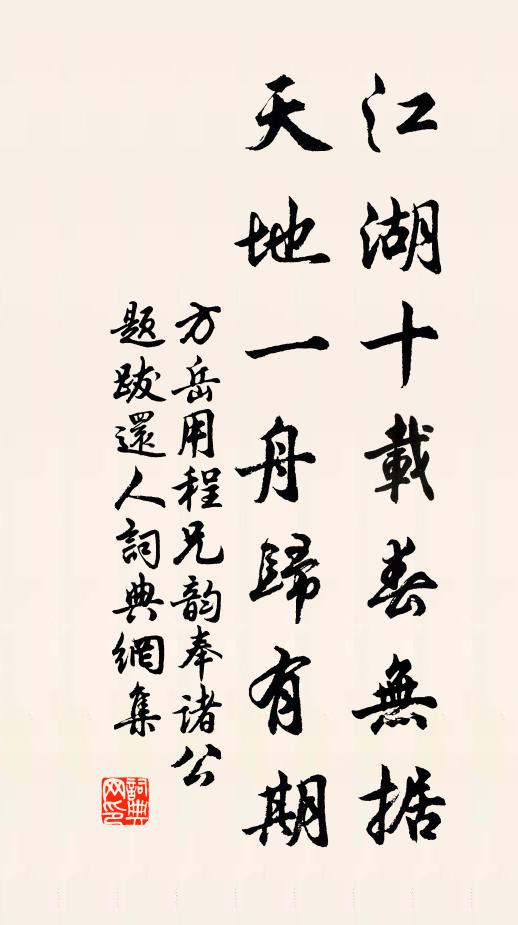 江湖十載春無據
天地一舟歸有期
方岳用程兄韵奉诸公
题跋還人詞典網集
詞典网印